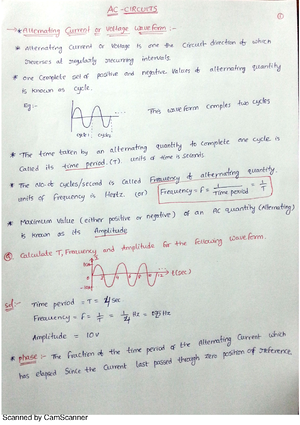 AC-CIRCUITS
①
→ * Alternating Current or Voltage Waveform :-
* Alternating Current or Voltage is one the Circuit direction of which
reverses at regularly recurring intervals.
* one Complete set of positive and negative values of alternating quantity
is known as cycle.
Eg:-
This waveform comples two cycles
cycle1 cycle2
* The time taken by an alternating quantity to Complete one cycle is
Called its time period (T) units of time is seconds
* The No. of cycles/second is called Frequency of alternating quantity.
units of Frequency is Hertz (or) Frequency = f = 1/Time period = 1/T
* Maximum value (either positive or negative) of an AC quantity (Alternating)
is known as its Amplitude
Calculate T, Frequency and Amplitude for the following waveform.
t(sec)
Sol:- Time period = T = 4 sec
Frequency = f = 1/T = 1/4 Hz =
Amplitude = 10V
* phase :- The fraction of the time period of the Alternating Current which
has elapsed since the current last passed through zero position of reference
Scanned by CamScanner